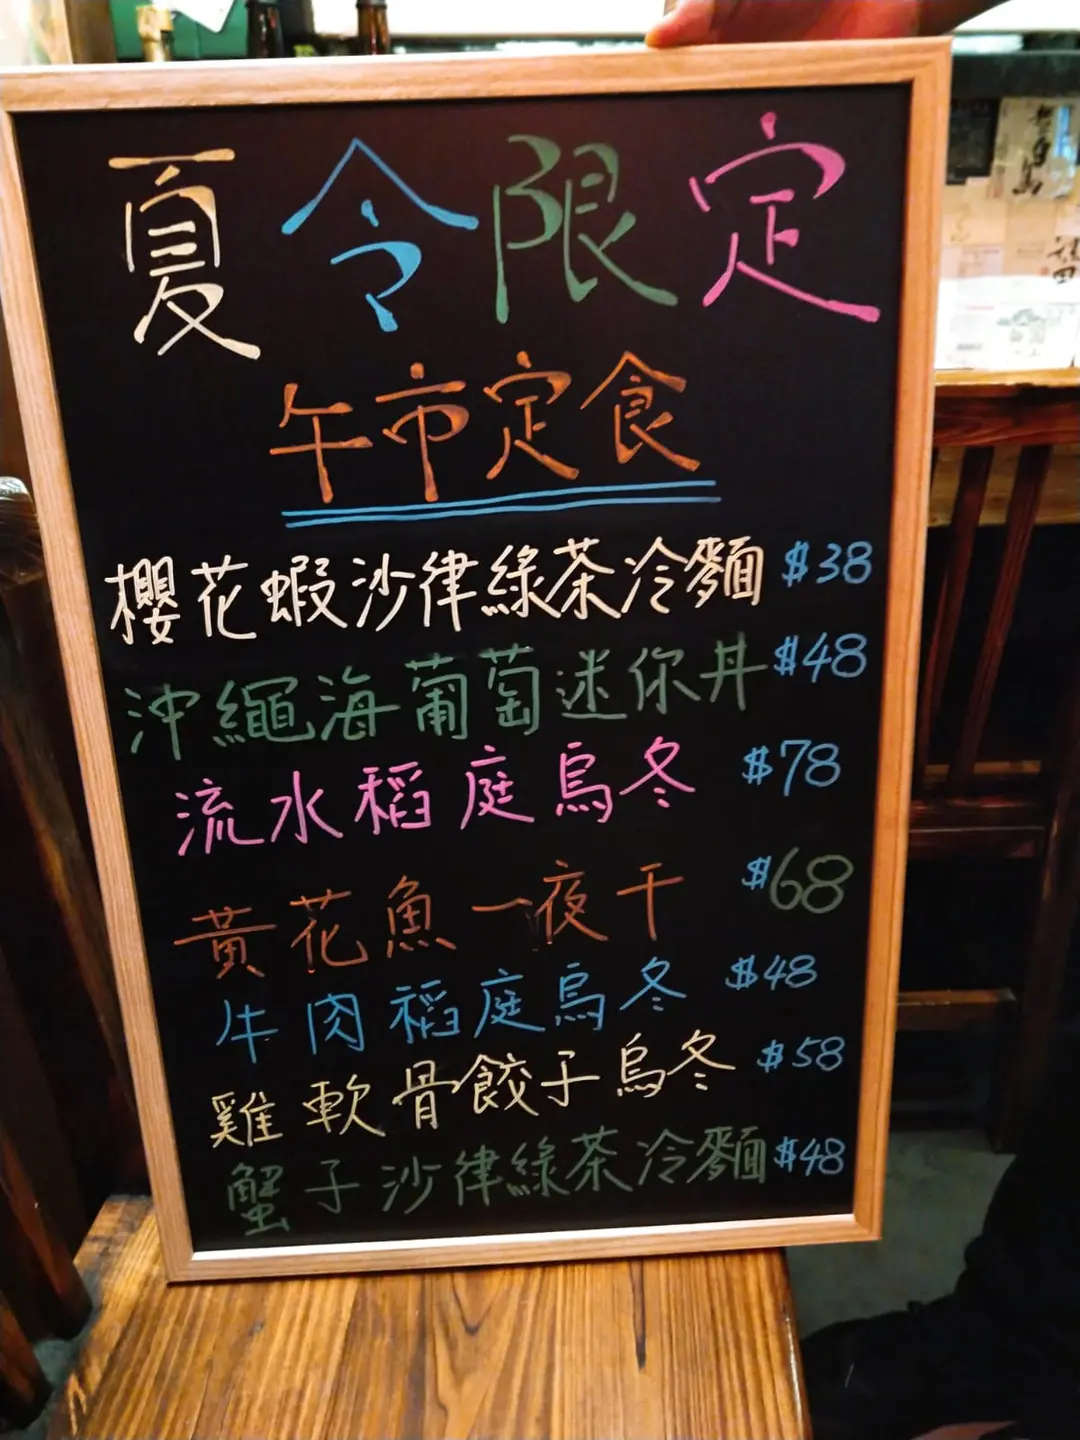 夏令限定
午市定食
櫻花蝦沙律綠茶冷麵 $38
沖繩海葡萄迷你丼 $48
流水稻庭烏冬 $78
黃花魚一夜干 $68
牛肉稻庭烏冬 $48
雞軟骨餃子烏冬 $58
蟹子沙律綠茶冷麵 $48